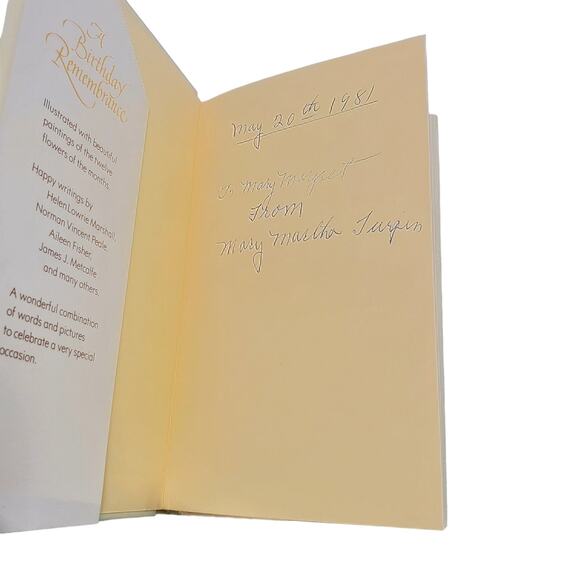 A
Birthday
Remembrance
Illustrated with beautiful
paintings of the twelve
flowers of the months.
Happy writings by
Helen Lowrie Marshall,
Norman Vincent Peale,
Aileen Fisher,
James J. Metcalfe
and many others.
A wonderful combination
of words and pictures
to celebrate a very special
occasion.
May 20th 1981
To Mary Margret
From
Mary Martha Turpin